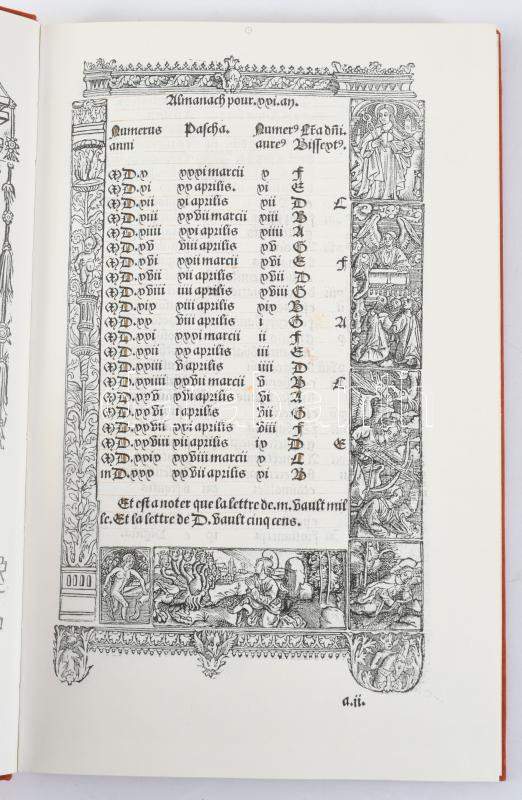 Almanach pour.xxi.an.
Numerus Pascha. Numerꝰ Lr̃a dñi.
anni aureꝰ Bissextꝰ.
MD.x xxxi marcii x F
MD.xi xx aprilis. xi E
MD.xii xi aprilis xii D C
MD.xiii xxvii marcii xiii B
MD.xiiii xvi aprilis xiiii A
MD.xv viii aprilis xv G
MD.xvi xxiii marcii xvi E F
MD.xvii xii aprilis xvii D
MD.xviii iiii aprilis xviii C
MD.xix xxiiii aprilis xix B
MD.xx viii aprilis i G A
MD.xxi xxxi marcii ii F
MD.xxii xx aprilis iii E
MD.xxiii v aprilis iiii D
MD.xxiiii xxvii marcii v B C
MD.xxv xvi aprilis vi A
MD.xxvi i aprilis vii G
MD.xxvii xxi aprilis viii F
MD.xxviii xii aprilis ix D E
MD.xxix xxviii marcii x C
mD.xxx xvii aprilis xi B
Et est a noter que la lettre de.m. vault mil
le. Et la lettre de D. vault cinq cens.
a.ii.